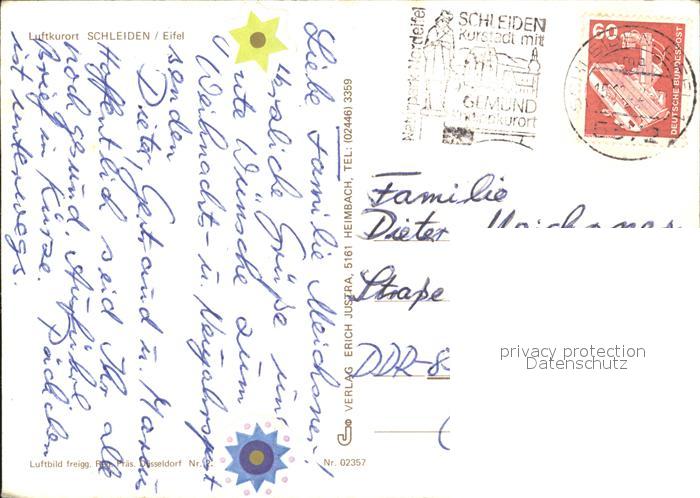 Luftkurort SCHLEIDEN / Eifel
Liebe Familie Meichsner!
Herzliche Grüße und
gute Wünsche zum
Weihnachts- u. Neujahrsfest
senden
Dieter, Gertraud u.
Hoffentlich seid Ihr alle
noch gesund. Ausführl.
Brief in Kürze. Päckchen
ist unterwegs.
Luftbild freigg. Reg. Präs. Düsseldorf Nr.
Nr. 02357
VERLAG ERICH JUSTRA, 5161 HEIMBACH, TEL: (02446) 3359
SCHLEIDEN
Kurstadt mit
GEMÜND
Kneippkurort
Nordeifel
60
DEUTSCHE BUNDESPOST
Familie
Dieter Meichsner
Straße
DDR-8
privacy protection
Datenschutz